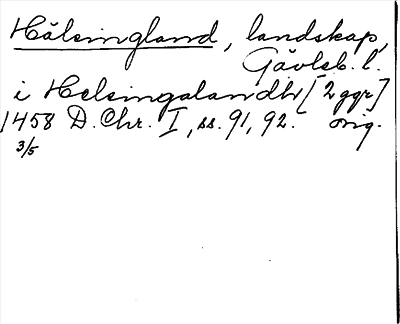 Hälsingland, landskap,
Gävleb. l.
i Helsingalandh [2 ggr]
1458 D. Chr. I, ss. 91, 92. orig.
3/5